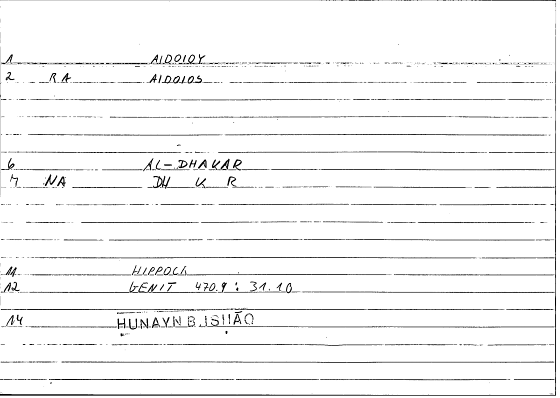 1 AIDOIOY
2 RA AIDOIOS
6 AL-DHAKAR
7 NA DH K R
11 HIPPOCR
12 GENIT 470.9 : 31.10
14 HUNAYN B. ISḤĀQ